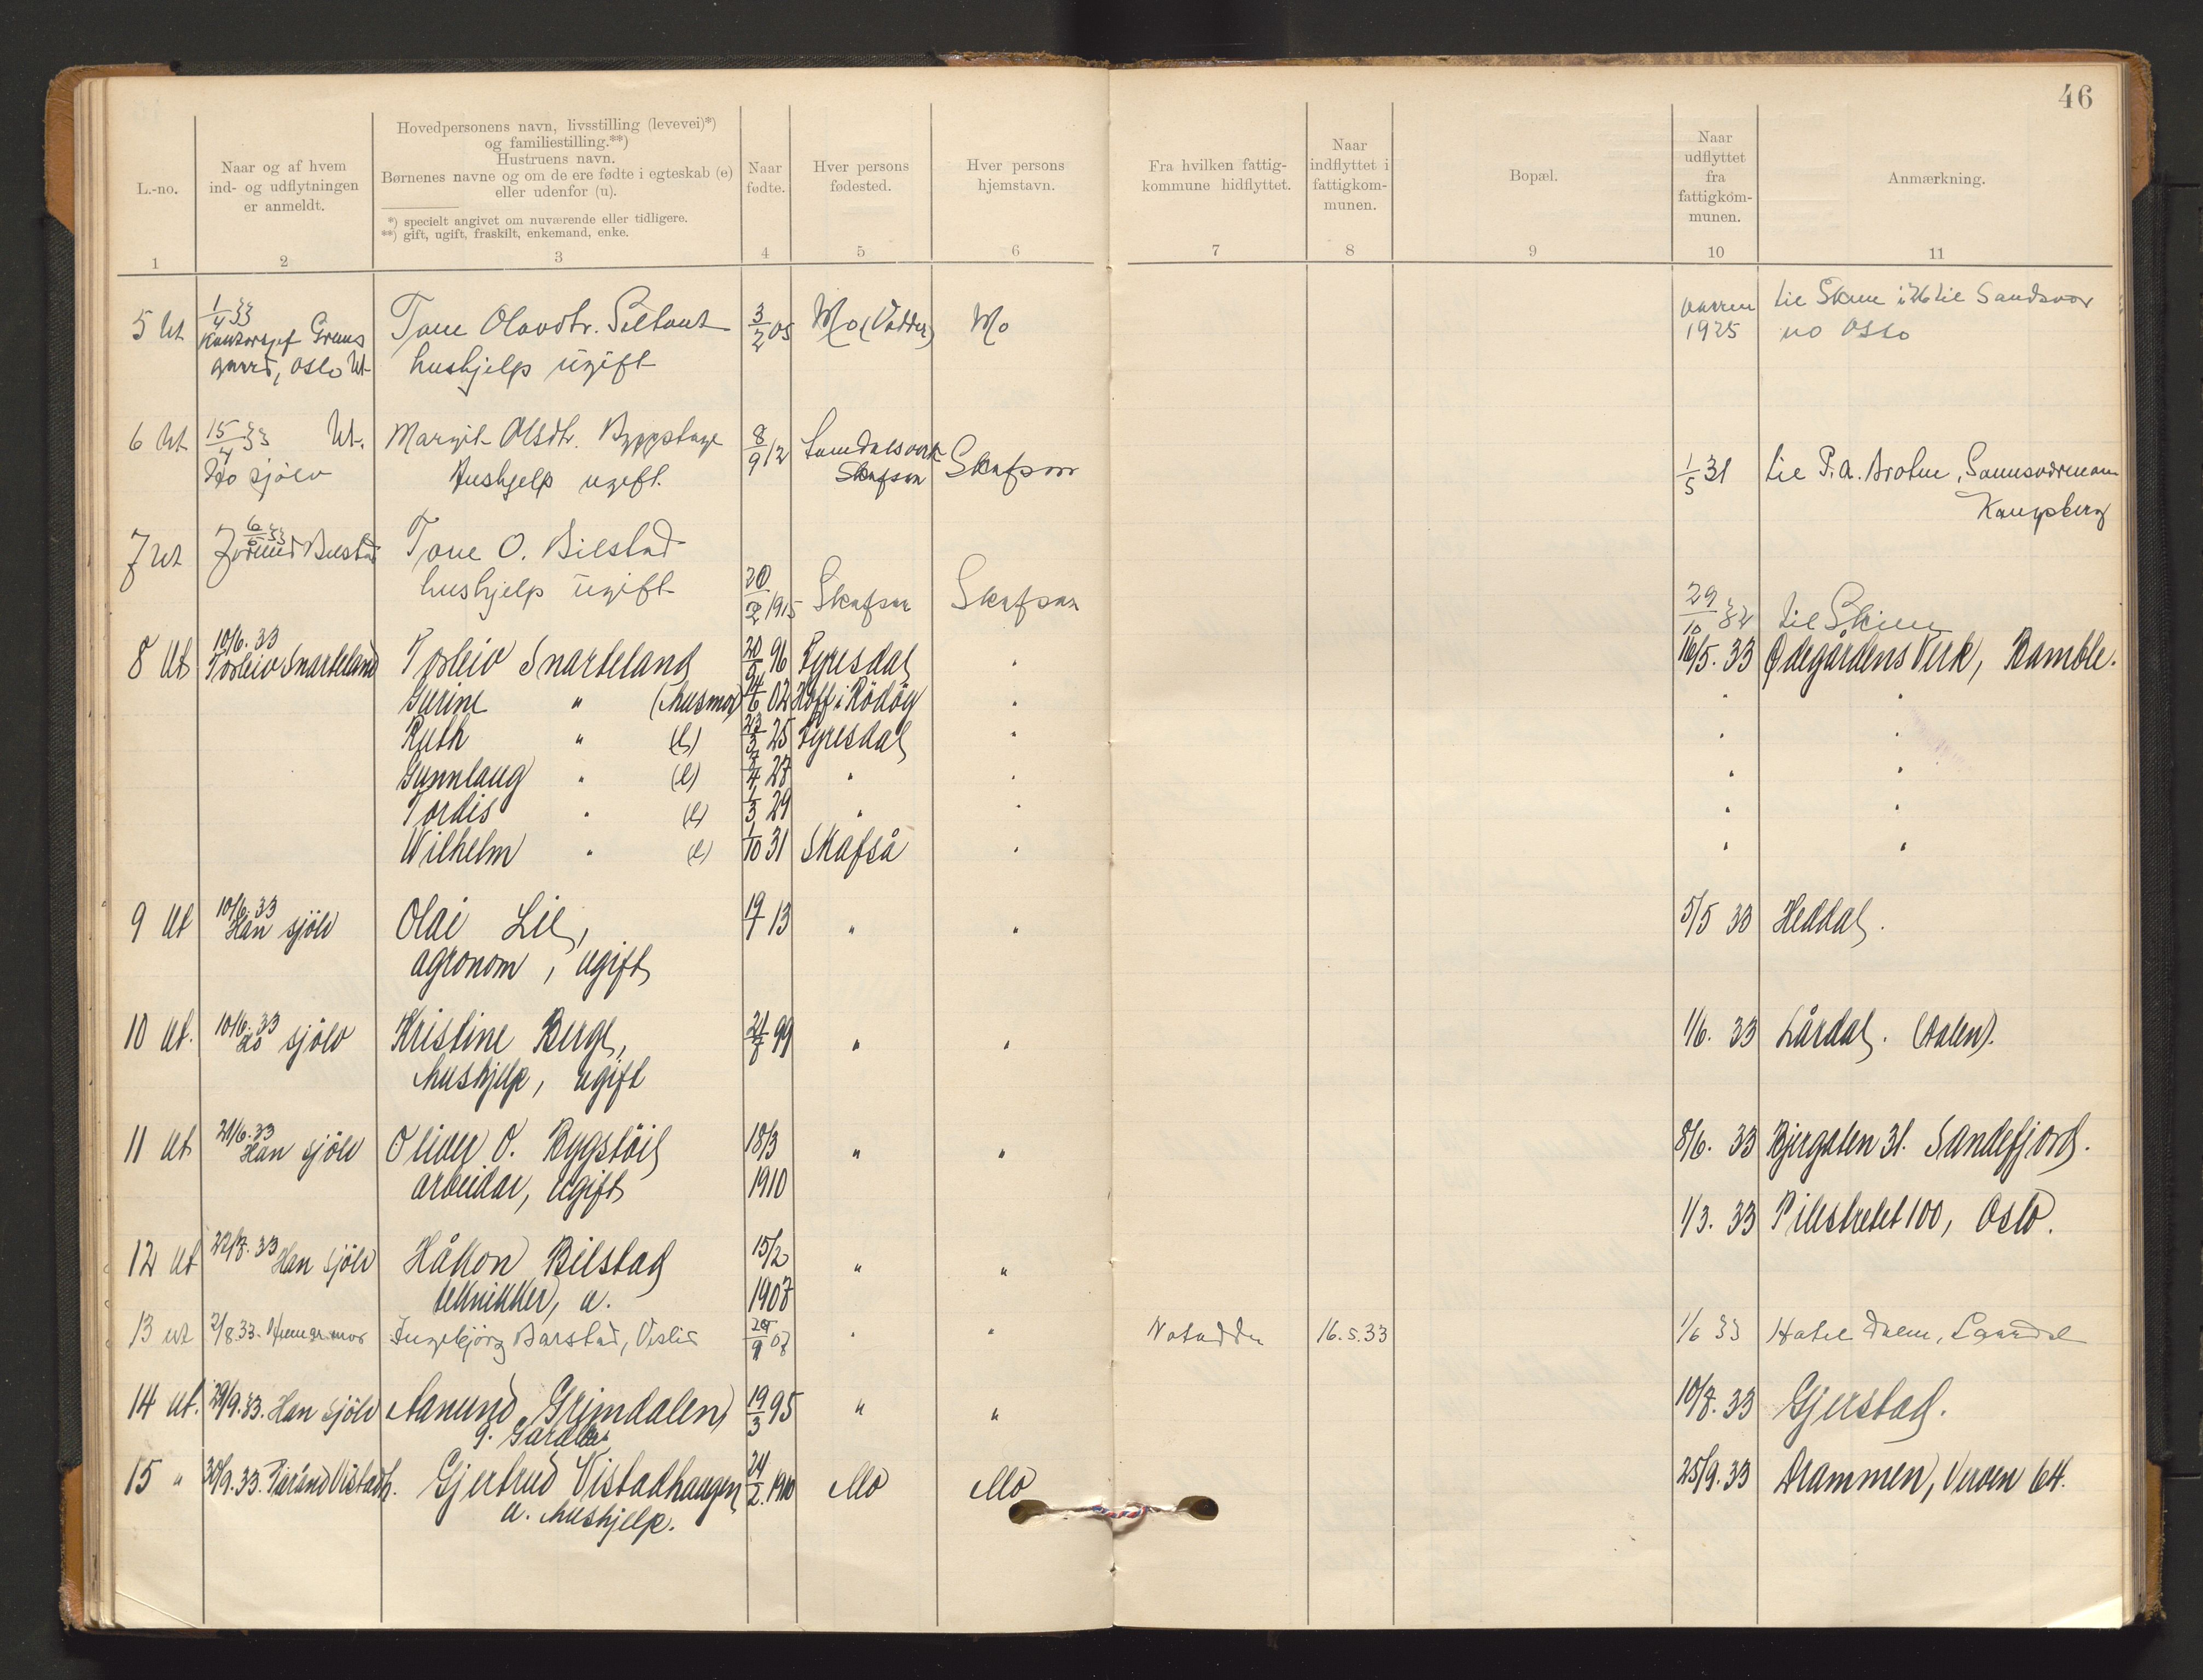 46
L.-no.
Naar og af hvem
ind- og udflytningen
er anmeldt.
Hovedpersonens navn, livsstilling (levevei)*)
og familiestilling.**)
Hustruens navn.
Børnenes navne og om de ere fødte i egteskab (e)
eller udenfor (u).
*) specielt angivet om nuværende eller tidligere.
**) gift, ugift, fraskilt, enkemand, enke.
Naar
fødte.
Hver persons
fødested.
Hver persons
hjemstavn.
Fra hvilken fattig-
kommune hidflyttet.
Naar
indflyttet i
fattigkom-
munen.
Bopæl.
Naar
udflyttet
fra
fattigkom-
munen.
Anmærkning.
1 2 3 4 5 6 7 8 9 10 11
5 Ut 1/4 33 Tone Olavdtr. 3/2 05 Mo Mo 1925 til Skien
Oslo Ut hushjelp ugift no Oslo
6 Ut 15/4 33 Ut. Margit Olsdtr. 8/9 12 Skafsaa Skafsaa 1/5 31 til P. A.
Ho sjølv Hushjelp ugift. Kongsberg
7 Ut 6/6 33 Tone O. Bilstad
hushjelp ugift 20/2 1915 Skafsaa Skafsaa 29/10 32 til Skien
8 Ut 10/6. 33 Torleiv Snarteland Torleiv Snarteland 20/9 96 Fyresdal " 16/5. 33 Ødegårdens Verk, Bamble.
Gurine " (husmor) 14/6 02 Hoff i Rödöy " " "
Ruth " (e) 23/3 25 Fyresdal " " "
Gunnlaug " (e) 2/4 27 " " " "
Tordis " (e) 1/3 29 " " " "
Wilhelm " (e) 1/10 31 Skafså " " "
9 Ut 10/6. 33 Han sjölv Olai Lie, 19/7 13 " " 5/5 33 Heddal.
agronom, ugift
10 Ut. 10/6. 33 Ho sjölv Kristine Berge, 21/7 99 " " 1/6. 33 Lårdal. (Dalen).
hushjelp, ugift
11 Ut 21/6. 33 Han sjölv Oliver O. Bygstöil 18/3 " " 8/6. 33 Bjergaten 31. Sandefjord.
arbeidar, ugift 1910
1/3. 33 Pilestredet 100, Oslo.
12 Ut 22/7. 33 Han sjölv Håkon Bilstad 15/2 " "
teknikker, u. 1907
13 ut 2/8. 33. Ingebjörg Barstad, 9 07 " " Notodden 16.5.33 1/6 33 Hotel Dalen, Laardal
14 ut. 29/9. 33. Han sjölv Aanund Grimdalen 19/3 95 " " 10/7. 33 Gjerstad.
15 " 30/9. 33. Gjertrud Vistadhaugen 24/2. 1910 Mo Mo 25/9. 33 Drammen, Verven 64.
u. hushjelp.